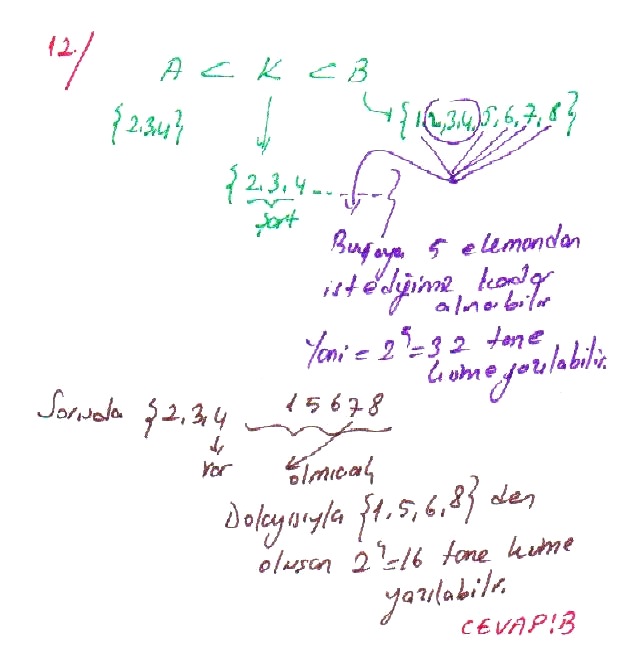 12/
A ⊂ K ⊂ B
{2,3,4}
{1,2,3,4,5,6,7,8}
{2,3,4......}
şart
Buraya 5 elemandan
istediğimiz kadar
alınabilir
Yani = 2^5 = 32 tane
küme yazılabilir.
Soruda {2,3,4 1 5 6 7 8
var olmıcak
Dolayısıyla {1,5,6,8} den
oluşan 2^4=16 tane küme
yazılabilir.
CEVAP:B